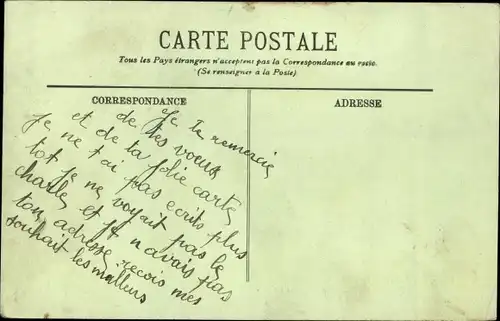 CARTE POSTALE
Tous les Pays étrangers n'acceptent pas la Correspondance au recto.
(Se renseigner à la Poste)
CORRESPONDANCE
ADRESSE
Je te remercie
de tes voeux
et de ta jolie carte
Je ne t'ai pas ecrits plus
tot je ne voyait pas le
charles et Je n'avais pas
ton adresse recois mes
souhait les meilleurs